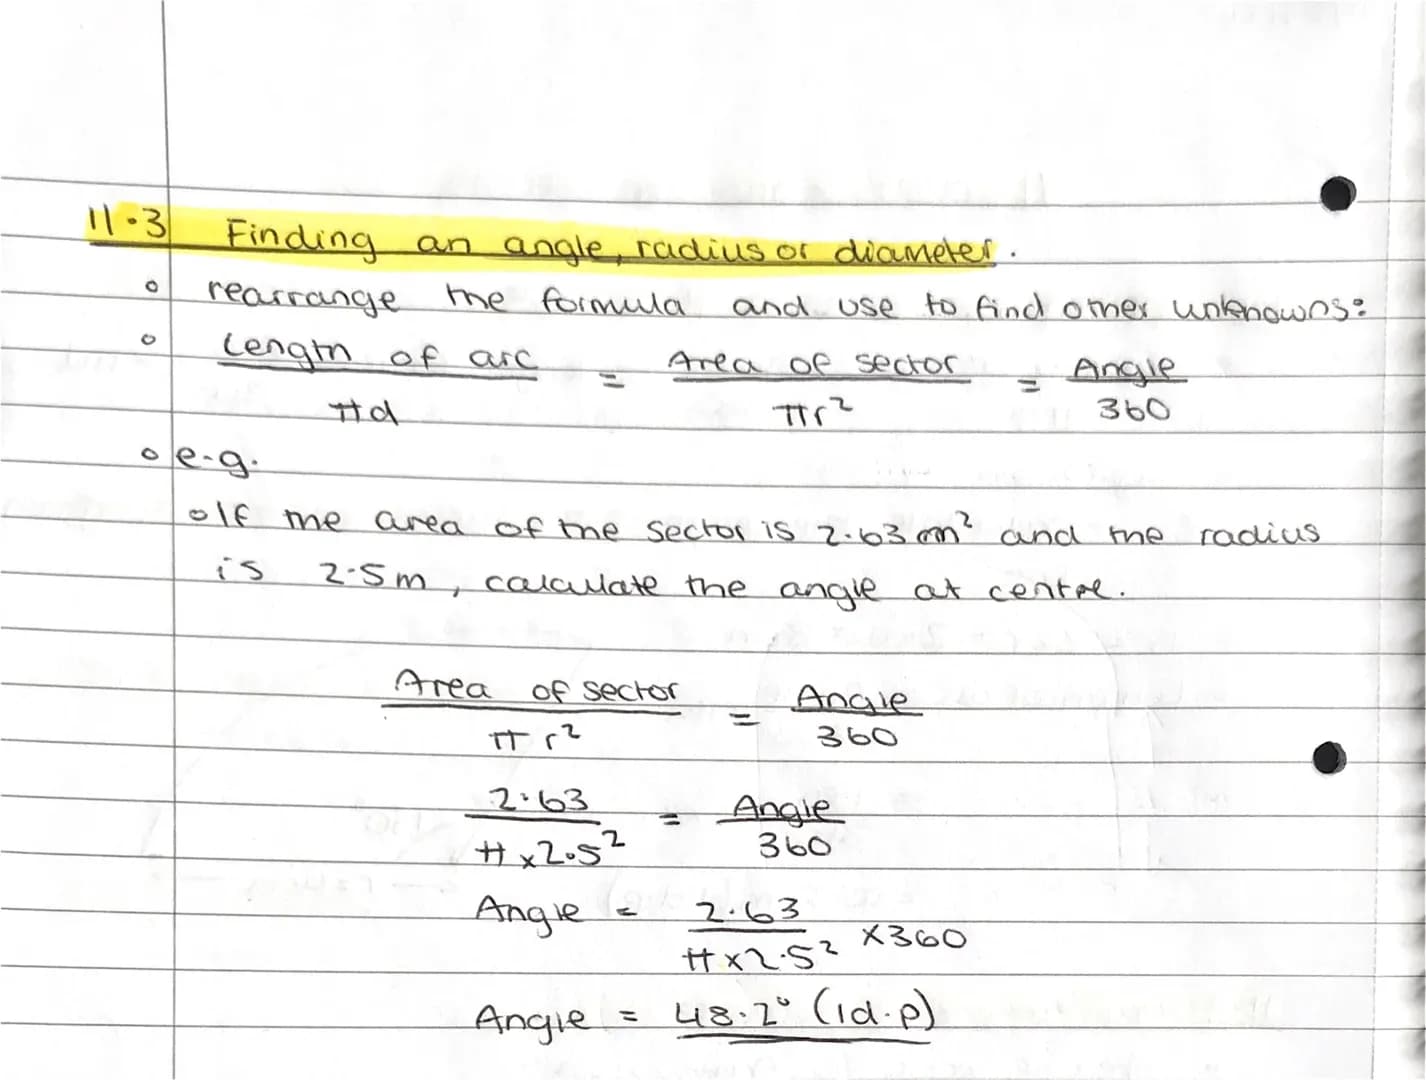 11.3 Finding an angle, radius or diameter.
o rearrange the formula and use to find other unknowns:
o Length of arc / πd = Area of sector / πr² = Angle / 360
o e.g.
o If the area of the sector is 2.63 m² and the radius
is 2.5m, calculate the angle at centre.
Area of sector / πr² = Angle / 360
2.63 / π x 2.5² = Angle / 360
Angle = 2.63 / π x 2.5² x 360
Angle = 48.2° (1d.p)